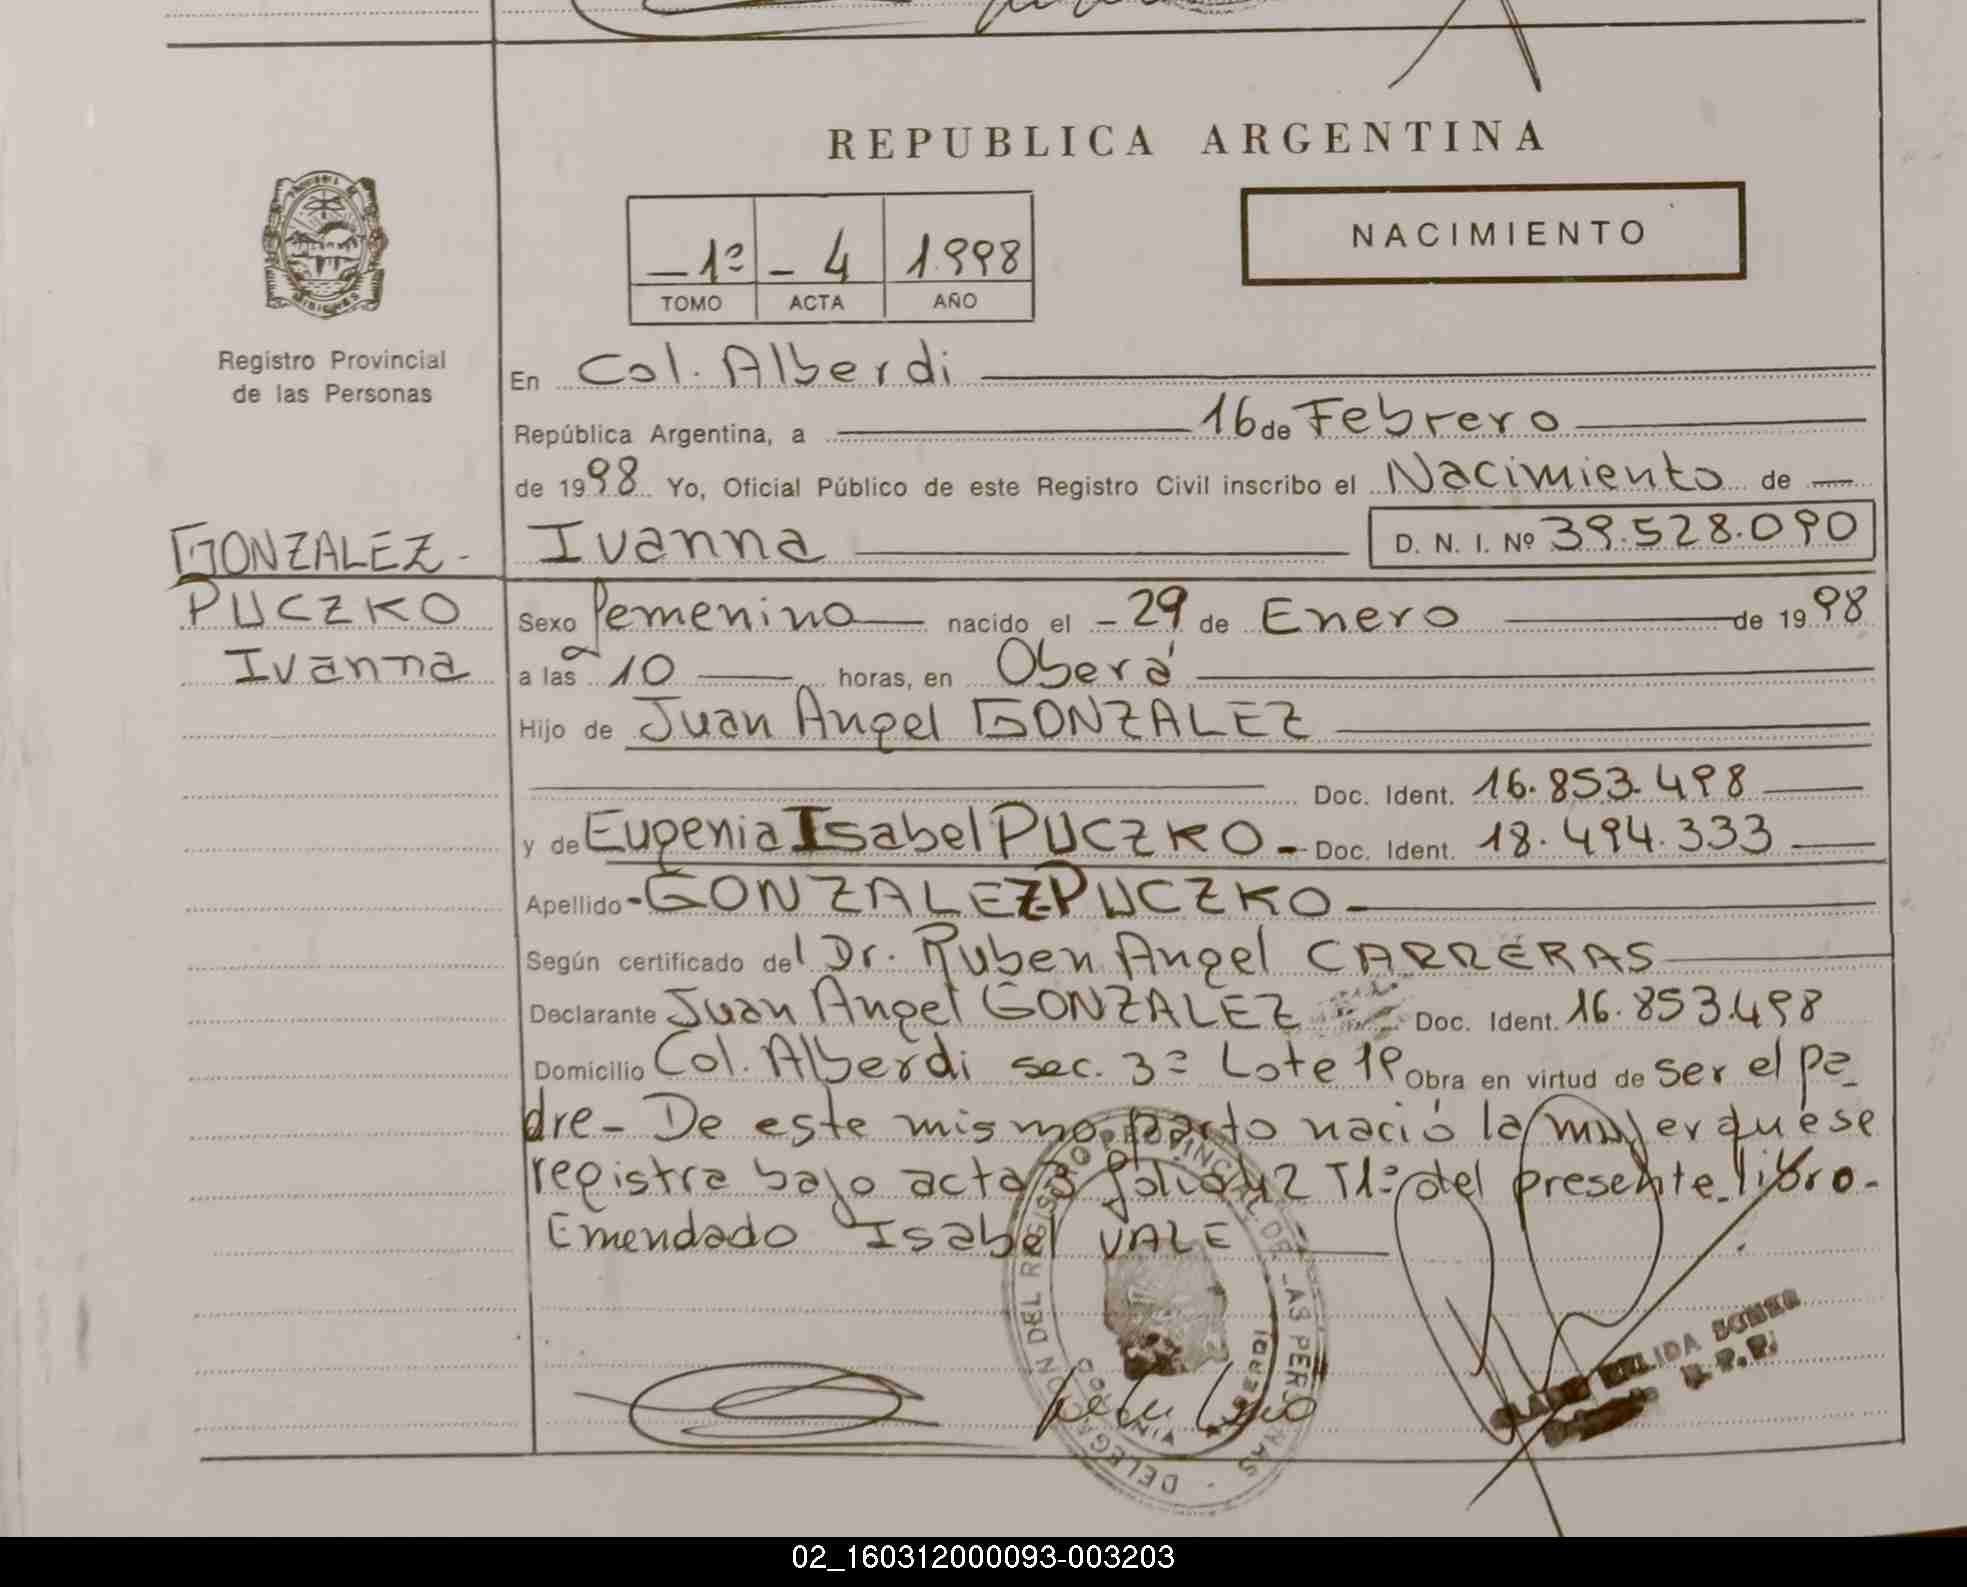 REPUBLICA ARGENTINA
NACIMIENTO
1º 4 1998
TOMO ACTA AÑO
Registro Provincial
de las Personas
En Col. Alberdi
República Argentina, a 16 de Febrero
de 1998 Yo, Oficial Público de este Registro Civil inscribo el Nacimiento de
GONZALEZ-
PUCZKO
Ivanna
Ivanna D. N. I. Nº 39.528.090
Sexo femenino nacido el - 29 de Enero de 1998
a las 10 horas, en Oberá
Hijo de Juan Angel GONZALEZ
Doc. Ident. 16.853.498
y de Eugenia Isabel PUCZKO - Doc. Ident. 18.494.333
Apellido - GONZALEZ-PUCZKO -
Según certificado del Dr. Ruben Angel CARRERAS
Declarante Juan Angel GONZALEZ Doc. Ident. 16.853.498
Domicilio Col. Alberdi sec. 3ª Lote 19 Obra en virtud de ser el pa_
dre - De este mismo parto nació la mujer que se
registra bajo acta 3 folio 42 T1º del presente libro.
Emendado Isabel VALE
DELEGACION DEL REGISTRO PROVINCIAL DE LAS PERSONAS
02_160312000093-003203